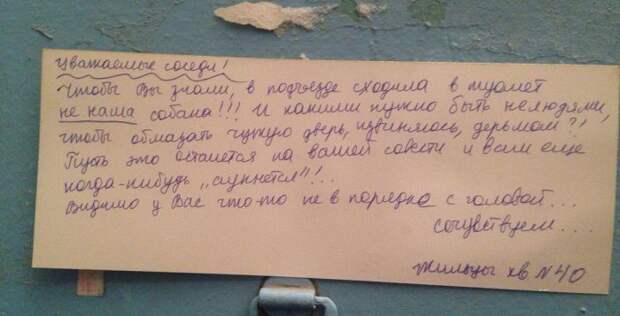 Уважаемые соседи!
Чтобы Вы знали, в подъезде сходила в туалет
не наша собака!!! И какими нужно быть нелюдями,
чтобы обмазать чужую дверь, извиняюсь, дерьмом?!
Пусть это останется на вашей совести и вам ещё
когда-нибудь „аукнется"!..
Видимо у Вас что-то не в порядке с головой...
сочувствуем...
Жильцы кв. N 40